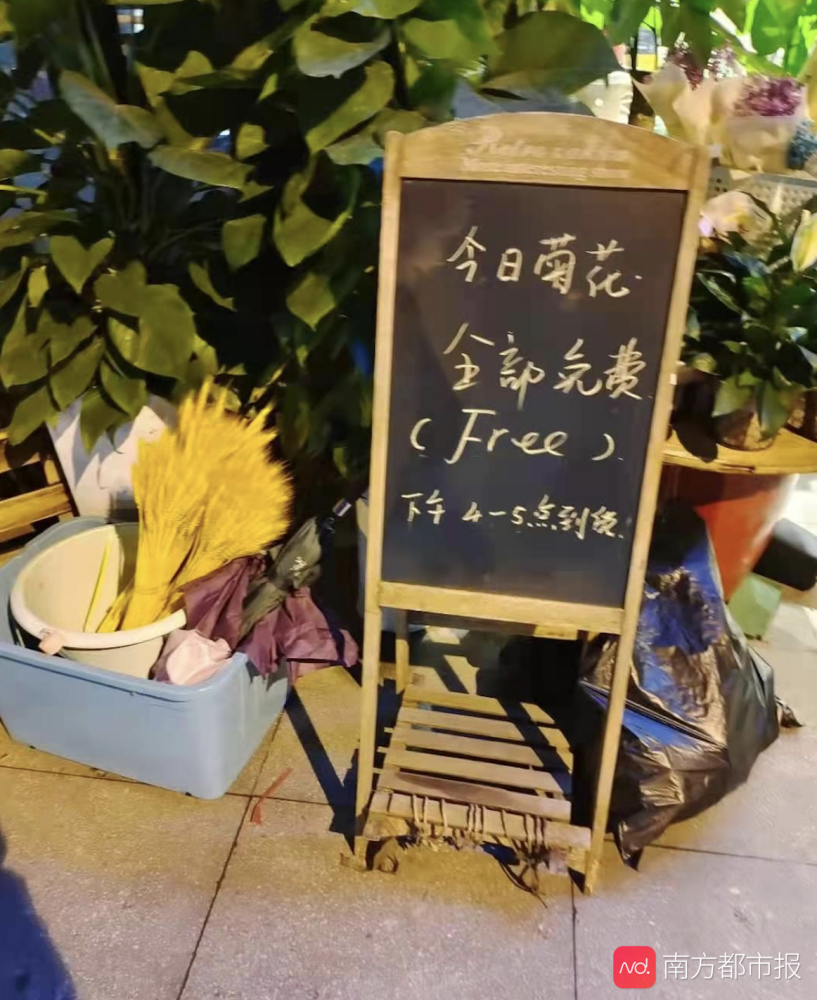 今日菊花
全部免费
(Free)
下午4-5点到货.
nd.
南方都市报